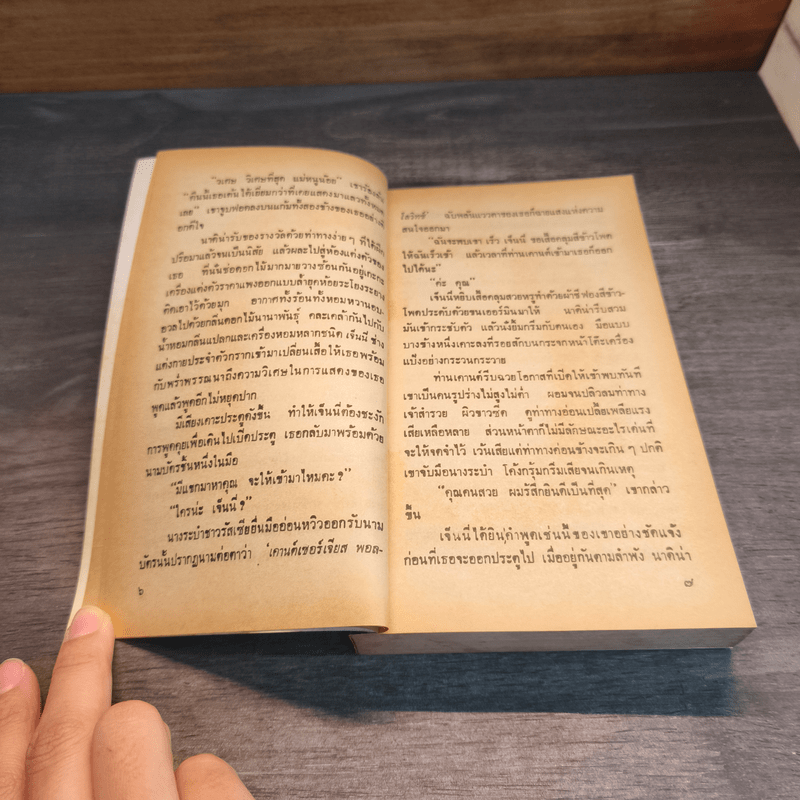 "วิเศษ วิเศษที่สุด แม่หนูน้อย" เขาร้องขึ้น
"คืนนี้เธอเต้นได้เยี่ยมกว่าที่เคยแสดงมาแล้วทั้งหมด
เลย" เขาจูบฟอดลงบนแก้มทั้งสองข้างของเธออย่างที่
อกดีใจ
นาดิน่ารับของรางวัลด้วยท่าทางง่ายๆ ที่ได้
ปรือมาแล้วจนเป็นนิสัย แล้วผละไปสู่ห้องแต่งตัวของ
เธอ ที่นั่นช่อดอกไม้มากมายวางซ้อนกันอยู่เกะกะ
เครื่องแต่งตัวราคาแพงออกแบบล้ำยุคห้อยระโยงระยาง
ติดเอาไว้ด้วยมุก อากาศทั้งร้อนทั้งหอมหวานอบ-
อวลไปด้วยกลิ่นดอกไม้นานาพันธุ์ คละเคล้ากันไปกับ
น้ำหอมกลิ่นแปลกและเครื่องหอมหลากชนิด เจ็นนี่ ช่าง
แต่งกายประจำตัวถรากเข้ามาเปลี่ยนเสื้อให้เธอพร้อม
กับพร่ำพรรณนาถึงความวิเศษในการแสดงของเธอ
พูดแล้วพูดอีกไม่หยุดปาก
มีเสียงเคาะประตูดังขึ้น ทำให้เจ็นนี่ต้องชะงัก
การพูดคุยเพื่อเดินไปเปิดประตู เธอกลับมาพร้อมด้วย
นามบัตรชิ้นหนึ่งในมือ
"มีแขกมาหาคุณ จะให้เข้ามาไหมคะ ?"
"ใครน่ะ เจ็นนี่ ?"
นางระบำชาวรัสเซียยื่นมืออ่อนหวิวออกรับนาม
บัตรนั้นปรากฏนามต่อตาว่า 'เคานต์เซอร์เจียส พอล-
๖
โลวิทซ์' ฉับพลันแววตาของเธอก็ฉายแสงแห่งความ
สนใจออกมา
"ฉันจะพบเขา เร็ว เจ็นนี่ ขอเสื้อคลุมสีข้าวโพด
ให้ฉันเร็วเข้า แล้วเวลาที่ท่านเคานต์เข้ามาเธอก็ออก
ไปได้นะ"
"ค่ะ คุณ"
เจ็นนี่หยิบเสื้อคลุมสวยหรูทำด้วยผ้าชีฟองสีข้าว-
โพดประดับด้วยขนเออร์มินมาให้ นาดิน่ารับสวม
มันเข้ากระชับตัว แล้วนั่งยิ้มกริ่มกับตนเอง มือแบบ
บางข้างหนึ่งเคาะลงที่รอยสลักบนกระจกหน้าโต๊ะเครื่อง
แป้งอย่างกระวนกระวาย
ท่านเคานต์รีบฉวยโอกาสที่เปิดให้เข้าพบทันที
เขาเป็นคนรูปร่างไม่สูงไม่ต่ำ ผอมจนปลิวลมท่าทาง
เจ้าสำรวย ผิวขาวซีด ดูท่าทางอ่อนเปลี้ยเพลียแรง
เสียเหลือหลาย ส่วนหน้าตาก็ไม่มีลักษณะอะไรเด่นที่
จะให้จดจำไว้ เว้นเสียแต่ท่าทางค่อนข้างจะเกินๆ ปกติ
เขาจับมือนางระบำ โค้งกรุ้มกริ่มเสียจนเกินเหตุ
"คุณคนสวย ผมรู้สึกยินดีเป็นที่สุด" เขากล่าว
ขึ้น
เจ็นนี่ได้ยินคำพูดเช่นนี้ของเขาอย่างชัดแจ้ง
ก่อนที่เธอจะออกประตูไป เมื่ออยู่กันตามลำพัง นาดิน่า
๗